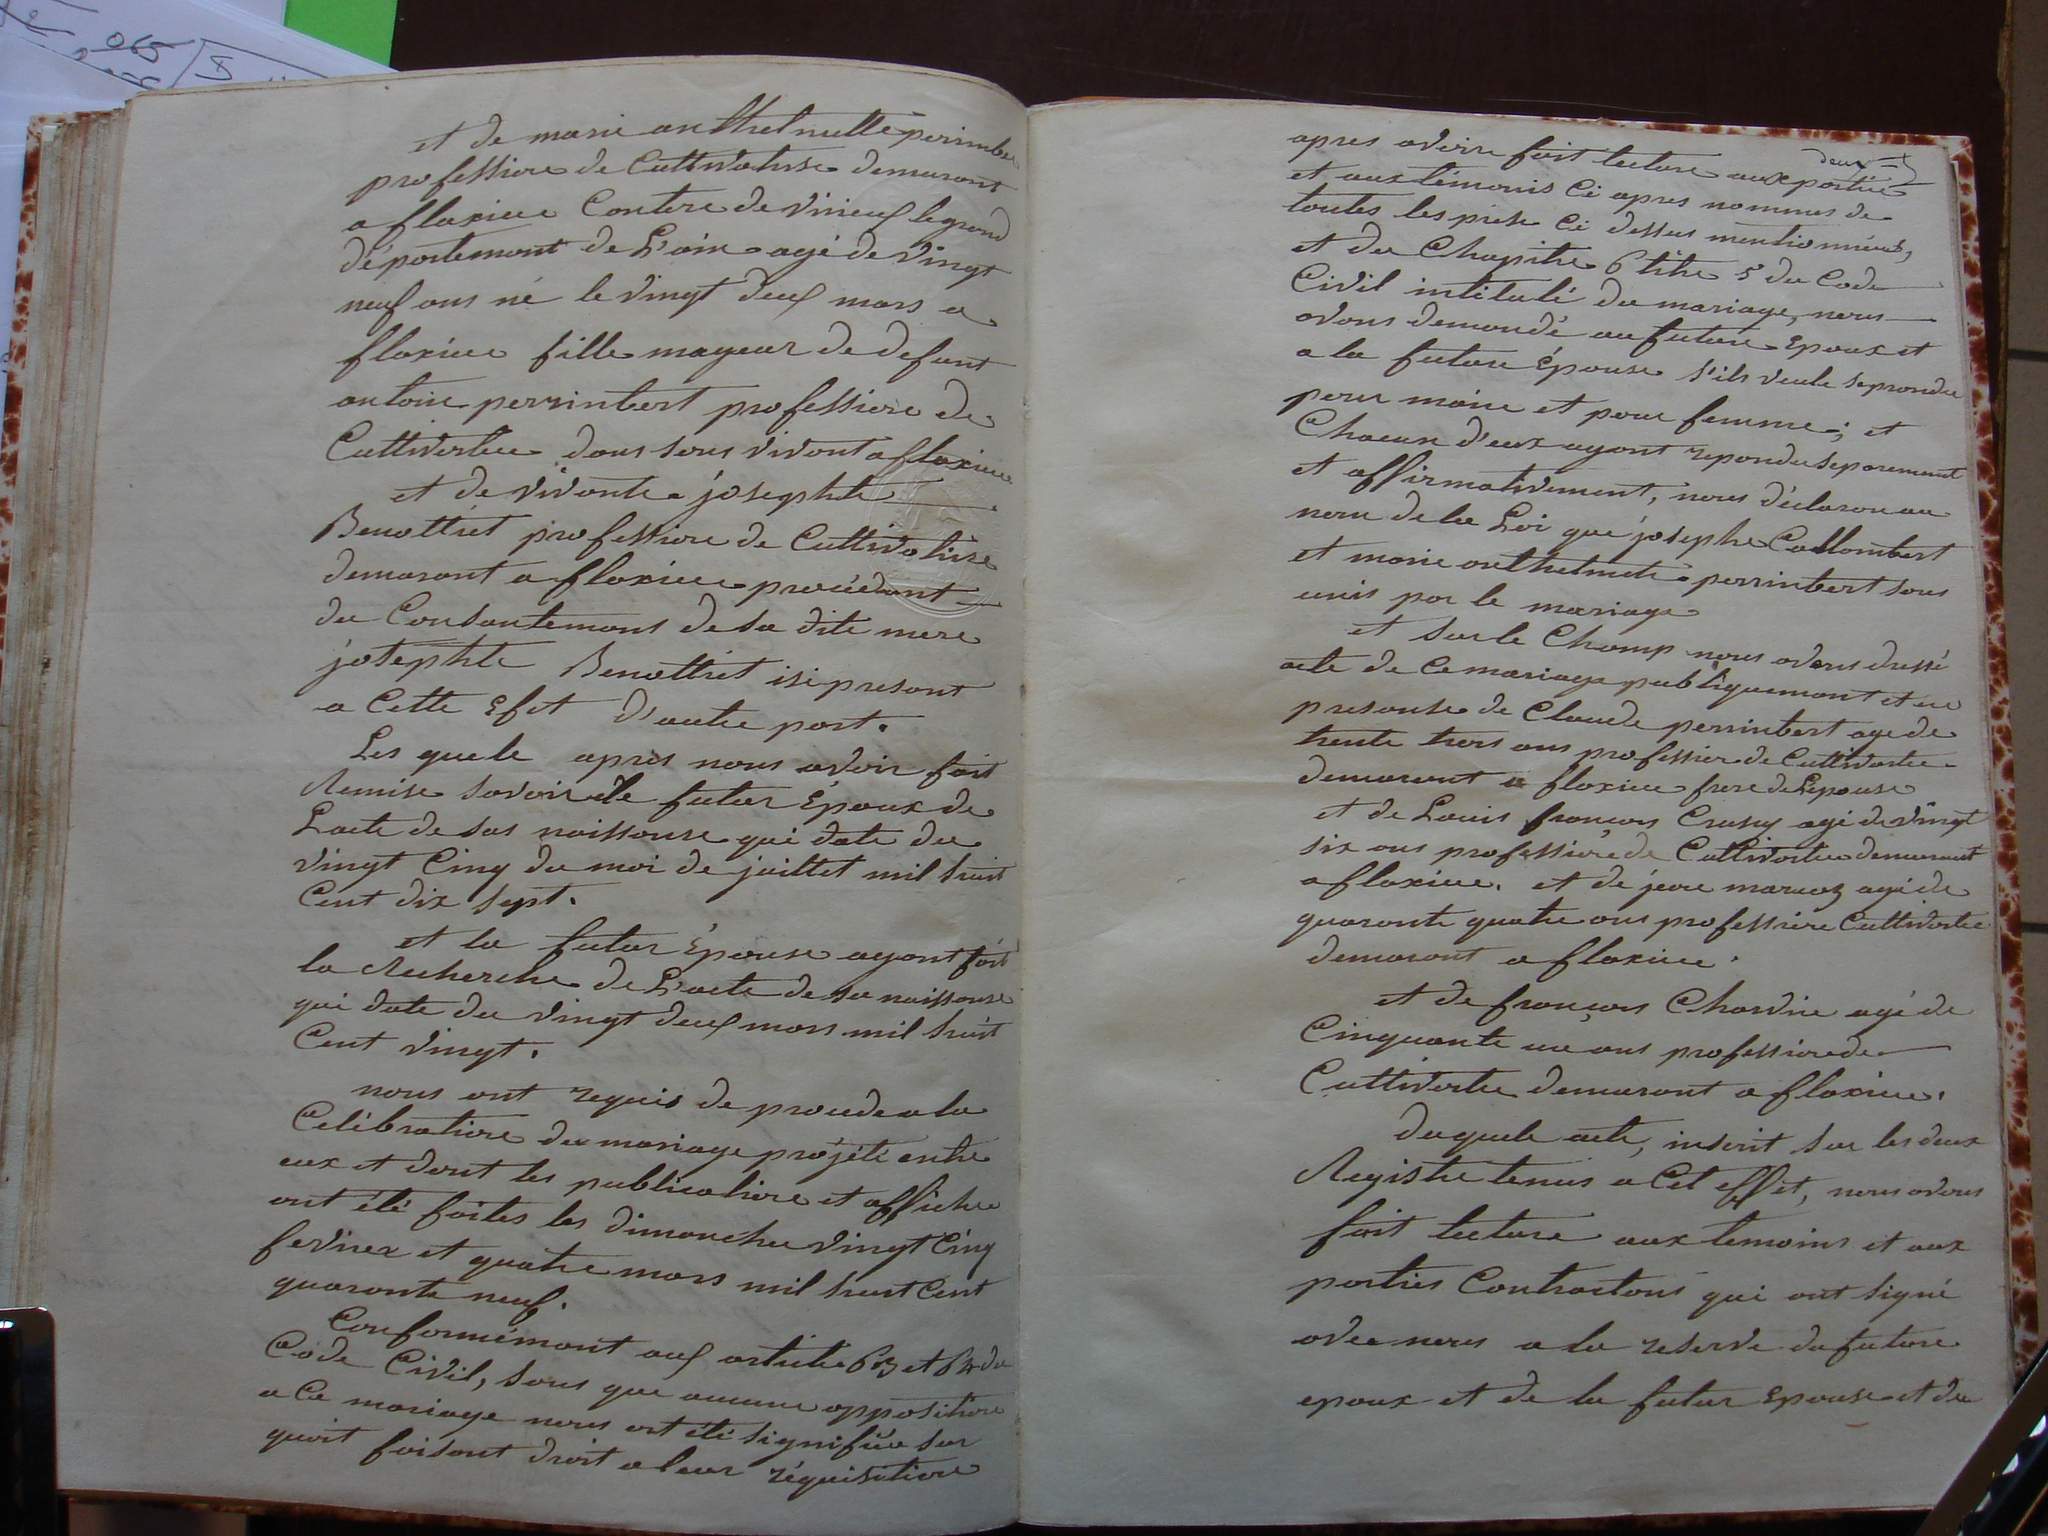 et de marie anthelmette perimber
professiore de Cultivatrise demurant
a flaxieu Contere de virieuf le grand
département de L'ain agé de vingt
neuf ans né le vingt deuf mars a
flaxieu fille mageur de defunt
antoine perrinbert professiore de
Cultivateur dans sons vivant a flaxieu
et de vivante josephte
Benottiet professiore de Cultivatrise
demurant a flaxieu procédant
du Consantemant de sa dite mere
josephte Benottiet isi presant
a Cette Efet d'autre part.
Les quele apres nous avoir fait
Remise savoir Le futur Époux de
L'acte de sas naissanse qui date du
vingt Cinq du moi de juillet mil huit
Cent dix sept.
et la futur Épouse ayant fait
la Recherche de L'acte de sa naissanse
qui date du vingt deuf mars mil huit
Cent vingt.
nous ont requis de proude a la
Célébratiore du mariage projété entre
eux et dont les publicatiore et affiche
ont été faites les dimanche vingt Cinq
fevriex et quatre mars mil huit Cent
quarante neuf.
Conformémant auf article 63 et 64 du
Code Civil, sans que aucune oppositiore
a Ce mariage nous ont été signifiée sur
quoit faisant droit a leur réquisitiore
deux
apres avoire fait lecture aux partiée
et aux témonis Ci apres nommes de
toutes les piese Ci dessus mentionnéees,
et du Chapitre 6 titre 5 du Code
Civil intitulé du mariage, nous
avons demandé au future Epoux et
a la future Épouse s'ils veule seprendre
pour marie et pour femme; et
Chacun d'eux ayant repondu séparement
et affirmativement, nous déclaron au
nom de la Loi que josephe Collombert
et marie anthelmete perrinbert sons
unis par le mariage
et sur le Champ nous avons dressé
acte de Ce mariage publiquemant et en
presanse de Claude perrinbert age de
trente trois ans professier de Cultivateur
demurant a flaxieu frere de L'épouse
et de Louis françois Crusy agé de vingt
six ans professiore de Cultivateur demurant
a flaxieu. et de jean marcoz agé de
quarante quatre ans professiore Cultivateur
demurant a flaxieu.
et de françois Chardire agé de
Cinquante un ans professiore de
Cultivateur demurant a flaxieu.
duquele acte, inscrit sur les deux
Registre tenus a Cet effet, nous avons
fait lecture aux temoins et aux
parties Contractans qui ont signé
avec nous a la reserve du future
epoux et de la futur Epouse et du